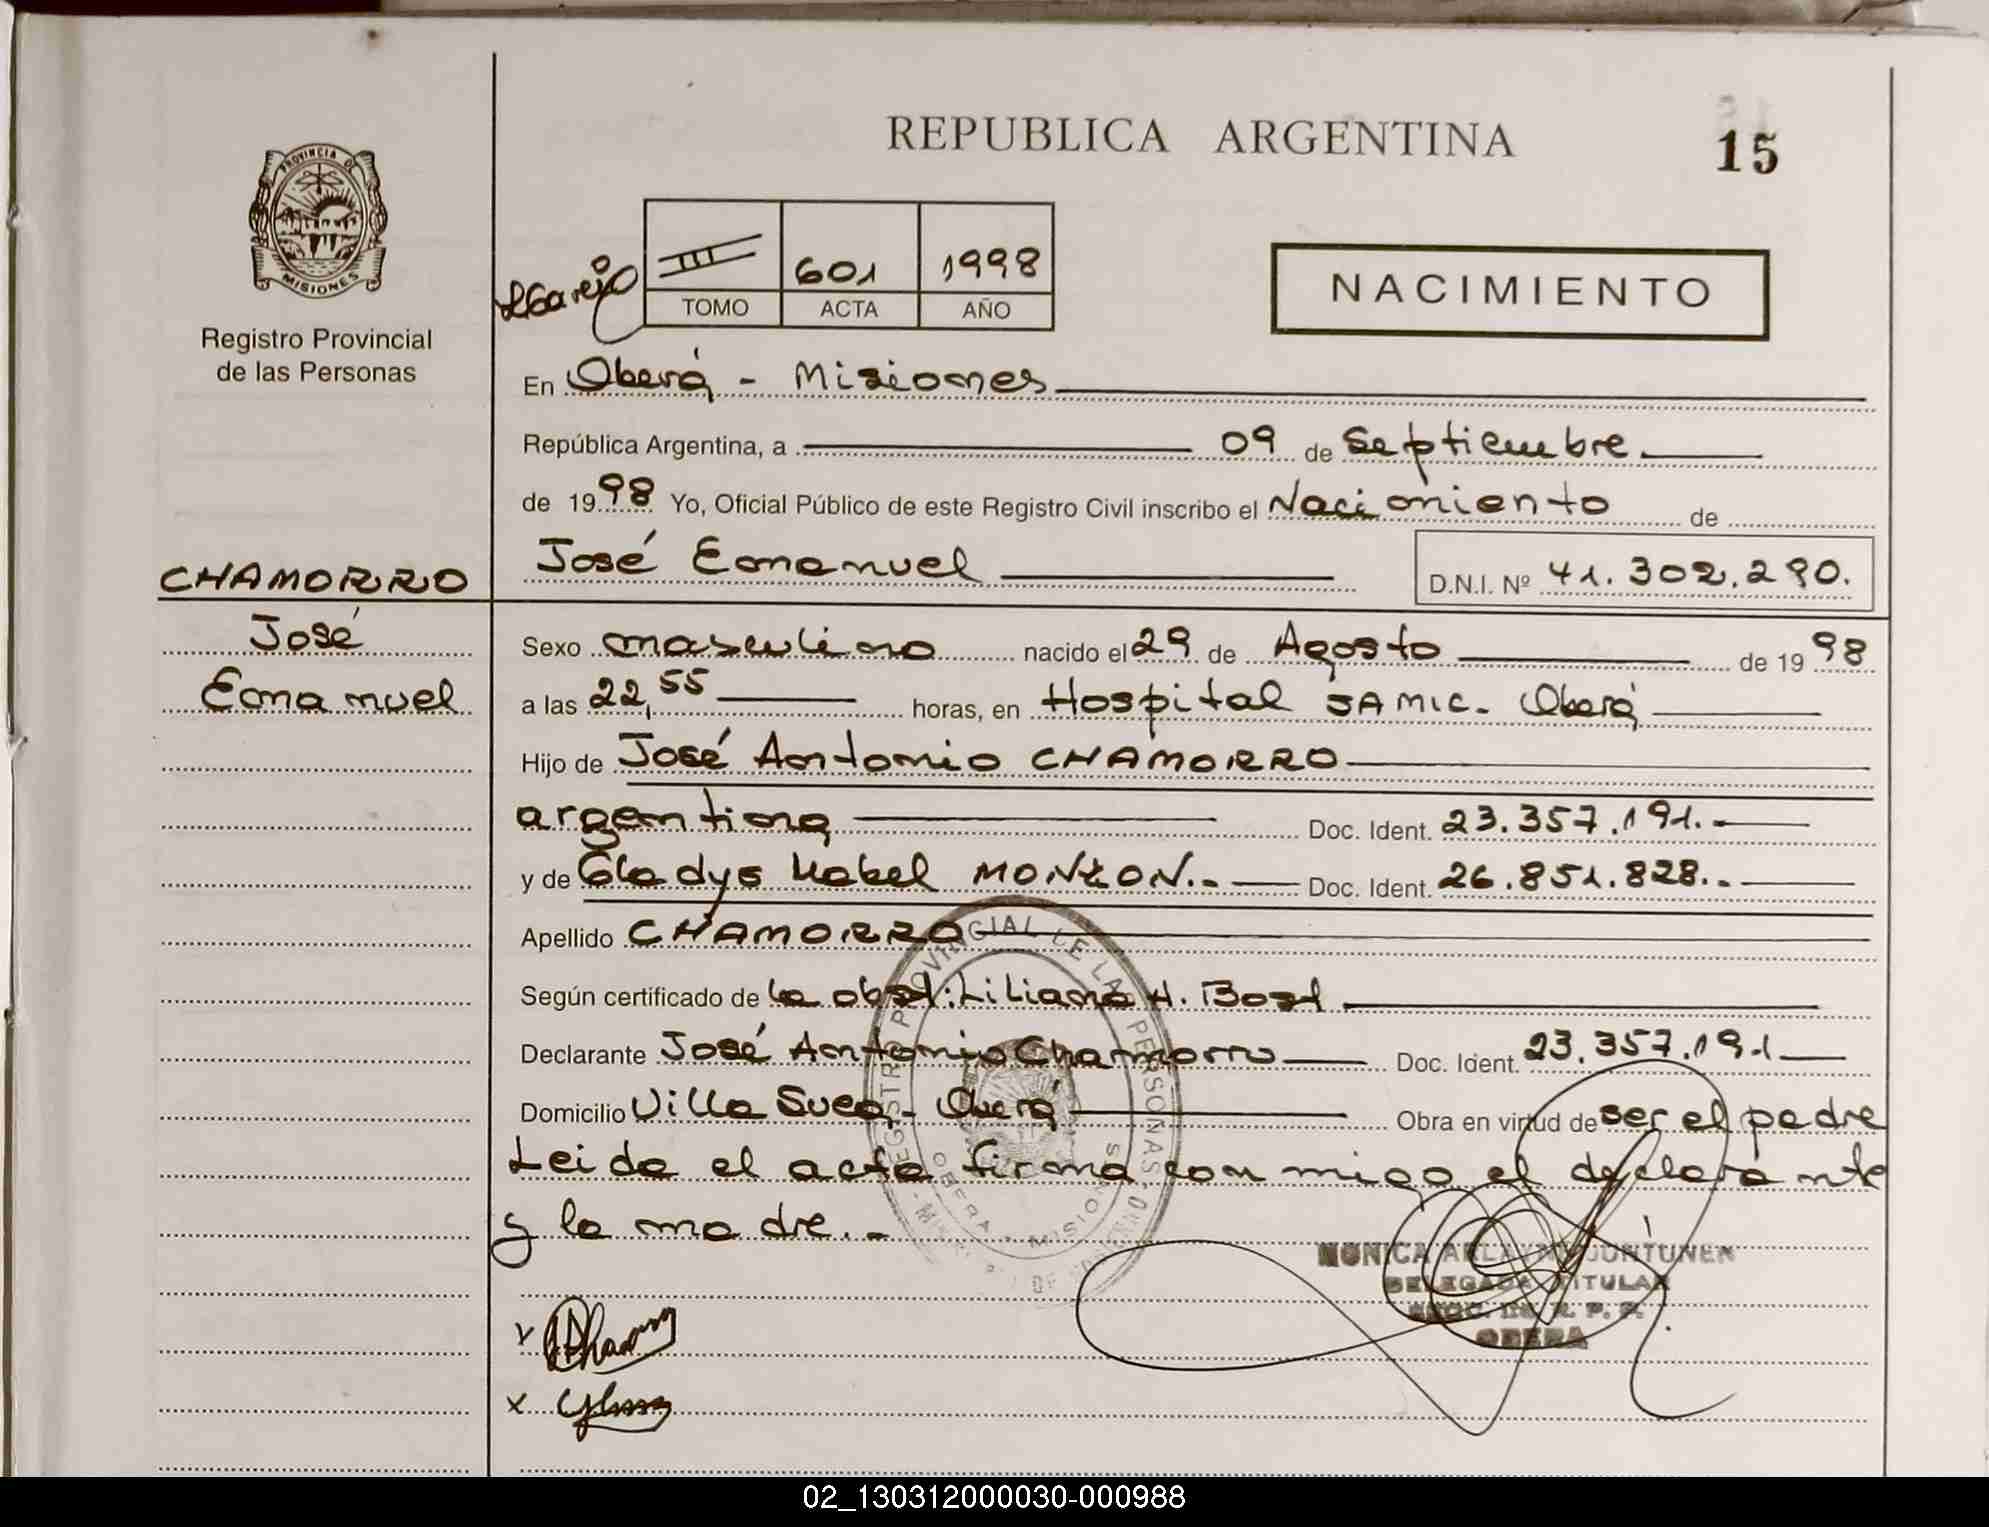 REPUBLICA ARGENTINA
15
PROVINCIA DE
MISIONES
Registro Provincial
de las Personas
III 601 1998
TOMO ACTA AÑO
NACIMIENTO
En Oberá - Misiones
República Argentina, a 09 de Septiembre
de 1998 Yo, Oficial Público de este Registro Civil inscribo el Nacimiento de
José Emanuel D.N.I. Nº 41.302.290.
CHAMORRO
José
Emanuel
Sexo masculino nacido el 29 de Agosto de 1998
a las 22,55 horas, en Hospital SAMIC. Oberá
Hijo de José Antonio CHAMORRO
argentina Doc. Ident. 23.357.191.-
y de Gladys Mabel MONZON.- Doc. Ident. 26.851.828.-
Apellido CHAMORRO
Según certificado de la obst: Liliana H. Bost
Declarante José Antonio Chamorro Doc. Ident. 23.357.191
Domicilio Villa Suea - Oberá Obra en virtud de ser el padre
Leida el acta firma con migo el declarante
y la madre.-
REGISTRO PROVINCIAL DE LAS PERSONAS
OBERA - MISIONES
MONICA
DELEGADA TITULAR
R. P. P.
OBERA
x
x
02_130312000030-000988